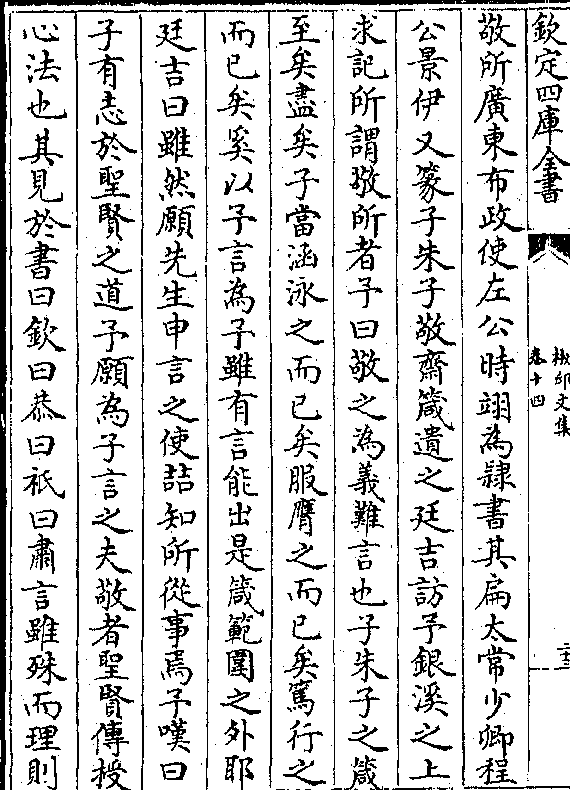 欽定四庫全書
椒邱文集
卷十四
敬所廣東布政使左公時翊為隸書其扁太常少卿程
公景伊又篆子朱子敬齋箴遺之廷吉訪予銀溪之上
求記所謂敬所者予曰敬之為義難言也子朱子之箴
至矣盡矣子當涵泳之而已矣服膺之而已矣篤行之
而已矣奚以予言為予雖有言能出是箴範圍之外耶
廷吉曰雖然願先生申言之使喆知所從事焉予嘆曰
子有志於聖賢之道予願為子言之夫敬者聖賢傳授
心法也其見於書曰欽曰恭曰祇曰肅言雖殊而理則